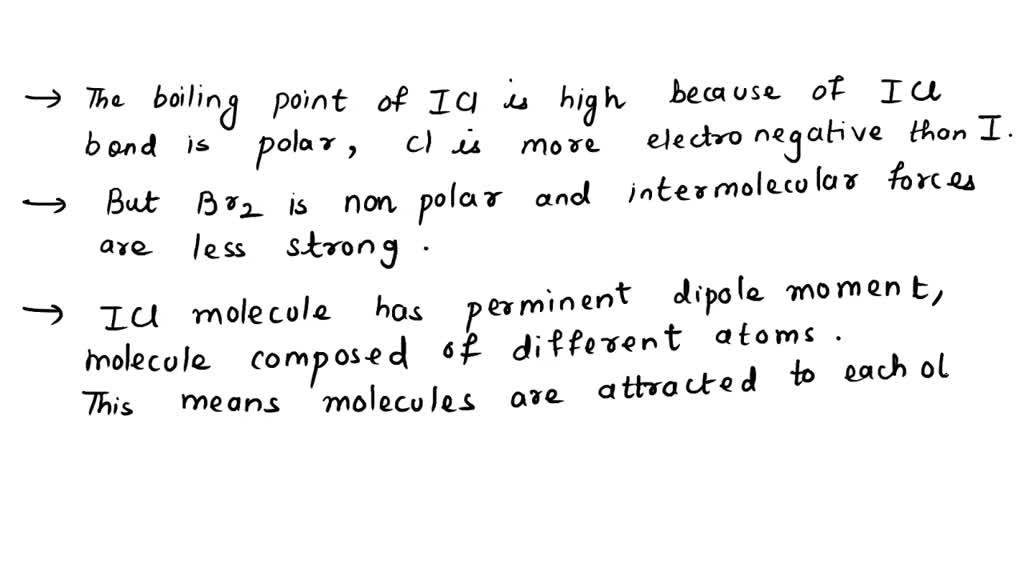 → The boiling point of ICl is high because of ICl
bond is polar, Cl is more electro negative than I.
→ But Br2 is non polar and intermolecular forces
are less strong.
→ ICl molecule has perminent dipole moment,
molecule composed of different atoms.
This means molecules are attracted to each ol